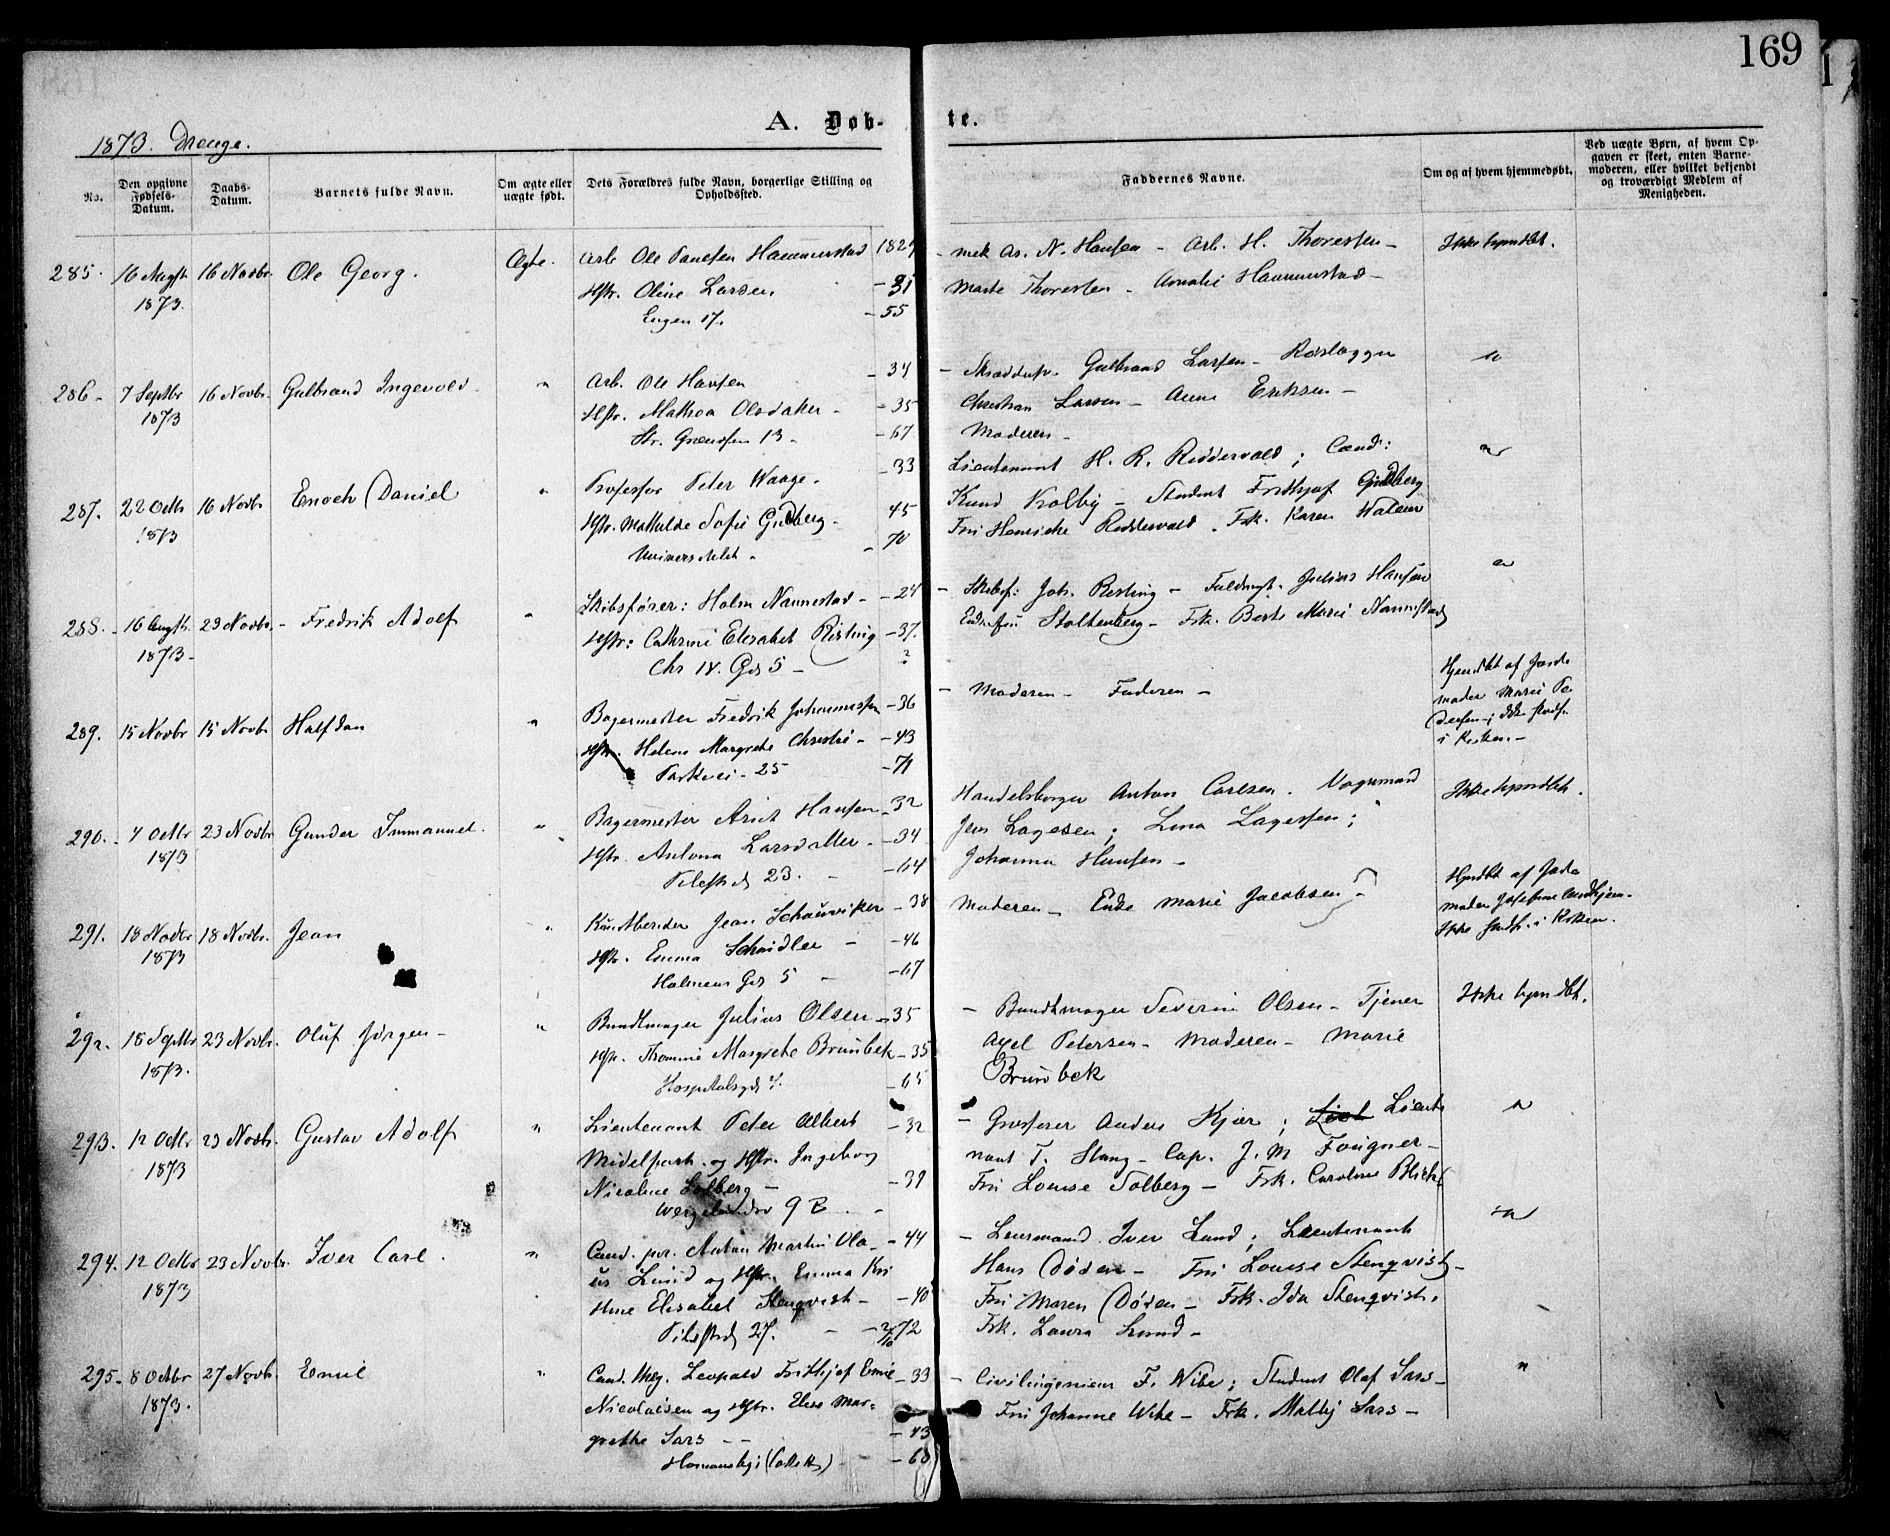 169
A. Døb-
te.
1873. Drenge.
No.
Den opgivne Fødsels-Datum.
Daabs-Datum.
Barnets fulde Navn.
Om ægte eller uægte født.
Dets Forældres fulde Navn, borgerlige Stilling og Opholdssted.
Faddernes Navne.
Om og af hvem hjemmedøbt.
Ved uægte Børn, af hvem Opgaven er skeet, enten Barnemoderen, eller hvilket bekjendt og troværdigt Medlem af Menigheden.
285. 16 Augst 1873 16 Novbr. Ole Georg. Ægte.
Arb Ole Hammerstad 1829
Hstr. Oline Larsen - 31
Engen 17. - 55
N. Hansen - Arb. H. Thoresen -
Marte Thoresen - Amalie Hammerstad -
Ikke hjmdbt.
286 - 7 Septbr 1873 16 Novbr. Gulbrand Ingevald - "
Arb. Ole Hansen - 34
Hstr. Mathea Olsdatter - - 35
Str. Grændsen 13 - - 67
- Gulbrand Larsen -
Christian Larsen - Anne Eriksen -
Moderen -
"
287. 22 Octbr 1873 16 Novbr Enoch Daniel "
Professor Peter Waage. - 33
Hstr. Mathilde Sofie Guldberg - 45
Universitetet - - 70
Lieutenant H. R. Reddervald; Cand:
Knud Kolby - Student Fridtjof Guldberg
Fru Henricke Reddervald. Frk. Karen
"
288. - 16 Augst. 1873 - 23 Novbr. - Fredrik Adolf "
Skibsfører: Holm Nannestad - - 24
Hstr: Cathrine Elisabet Risting - 37.
Chr IV. Gd 5 - ?
- Joh. Risting - Fuldmgt. Julius Hansen
Stoltenberg - Frk. Berte Marie Nannestad
"
289. 15 Novbr 15 Novbr Halfdan "
Bagermester Fredrik Johannessen - 36
Hstr. Helene Margrete Christie - - 43
Parkvei - 25 - 71
- Moderen - Faderen -
Hjemdbt af Jorde
moder Marie Pe
dersen -; ikke
i Kirken. -
290. - 4 Octbr 1873 23 Novbr Gunder Immanuel. "
Bagermester Arnt Hansen - 32
Hstr. Antona Larsdatter - - 34
Pilestd 23. - - 64
Handelsborger Anton Carlsen. Vognmand
Jens Lagesen; Lina Lagesen;
Johanna Hansen -
Ikke hjemdbt.
291. 18 Novbr 1873 18 Novbr. Jean "
Jean - 38
Hstr. Emma Schindler - - 46
Holmens Gd 5 - - 67
Moderen - Enke Marie Jacobsen -
Hjmdbt af Jorde
moder Josefine
Ikke i Kirken.
292. 18 Septbr 1873. 23 Novbr. Oluf Jørgen - "
Bundtmager Julius Olsen - 35
Hstr. Thomine Margrete Brunbek - 35
Hospitalsgd 7. - 65
- Bundtmager Severin Olsen - Tjener
Axel Petersen - Moderen - Marie
Brunbek
Ikke hjemdbt.
293. 12 Octbr 1873 23 Novbr. Gustav Adolf "
Lieutenant Peter Albert - 32
Midelfart og Hstr. Ingeborg
Nicoline Solberg - - 39
9 B. -
- Grosserer Anders Kjær; Lieute
nant T. Stang - Cap. J. M Fougner -
Fru Louise Solberg - Frk. Caroline
"
294. 12 Octbr 1873 23 Novbr. Iver Carl. "
Cand. Anton Martin Ola - 44
us Lund og Hstr. Emma Kri
stine Elisabet Stenqvist - - 40
Pilestd 27. - - 2/10 72
- Lensmand Iver Lund; Lieutenant
Hans Døden - Fru Louise Stenqvist -
Fru Maren Døden - Frk. Ida Stenqvist.
Frk. Laura Lund -
"
295. 8 Octbr 1873. 27 Novbr. Emil "
Cand. Leopold Frithjof Emil - 33
Nicolaisen og Hstr. Elise Mar-
grethe Sars - - - 43
Homansby - 68
- Civilingeniør F. Wibe; Student Olaf Sars -
Fru Johanne Wibe - Frk. Mally Sars -
"